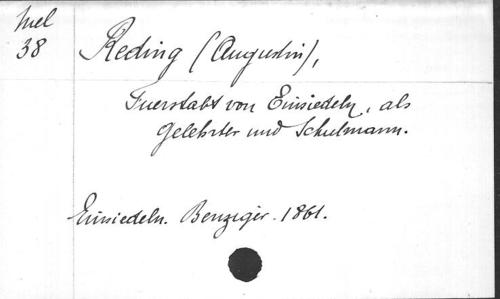 Mel
38
Reding (Augustin),
Fuerstabt von Einsiedeln, als
Gelehrter und Schulmann.
Einsiedeln. Benziger. 1861.